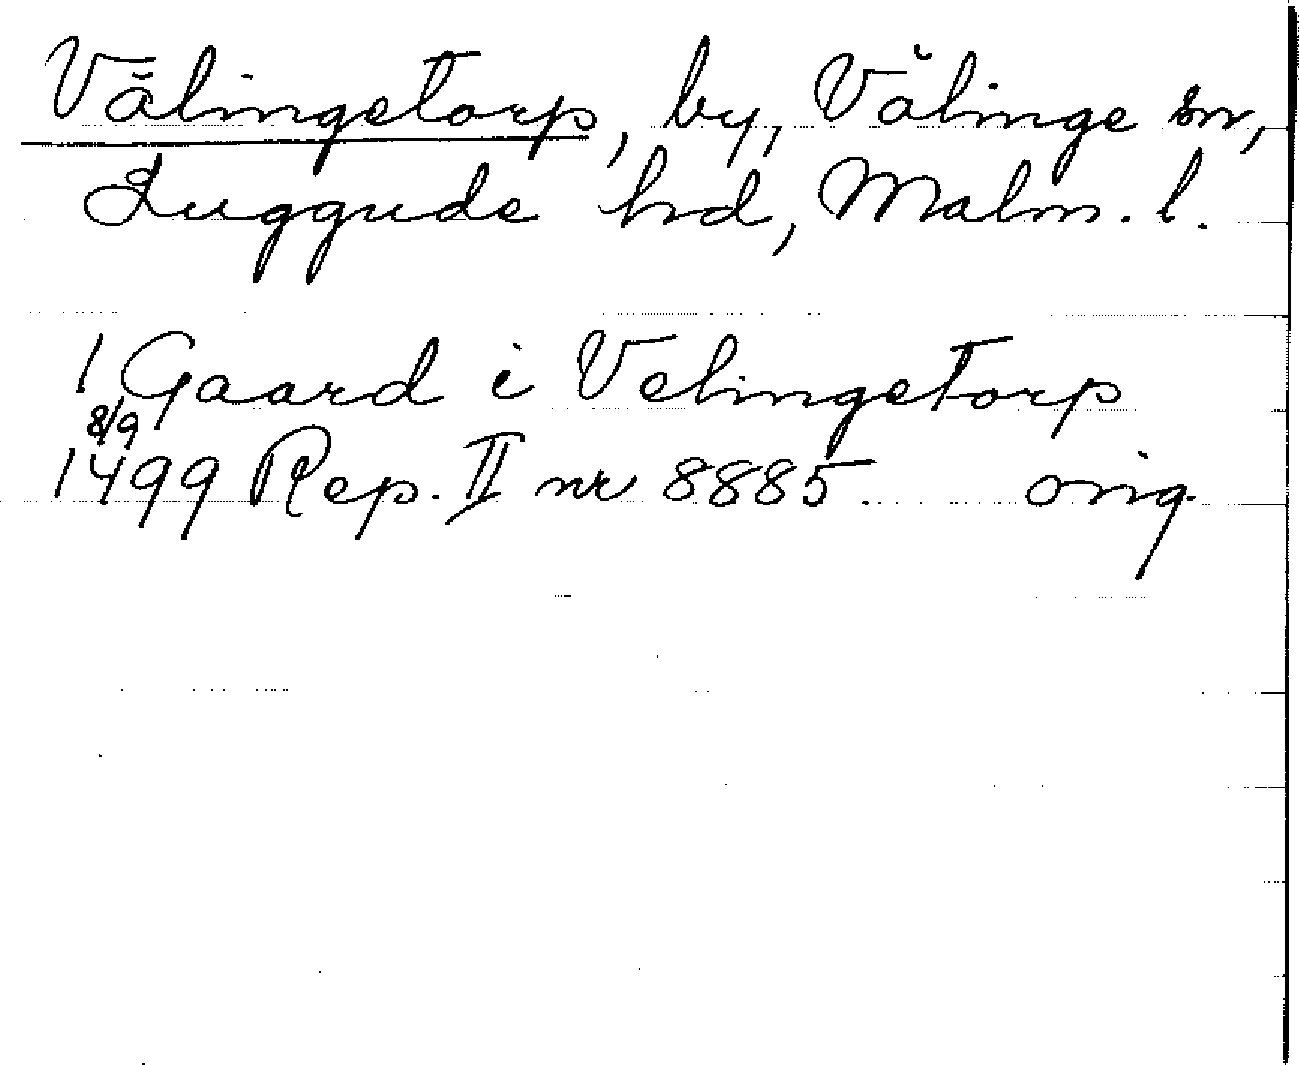 Välingetorp, by, Välinge sn,
Luggude hd, Malm. l.
1 Gaard i Velingetorp
8/9
1499 Rep. II nr 8885. orig